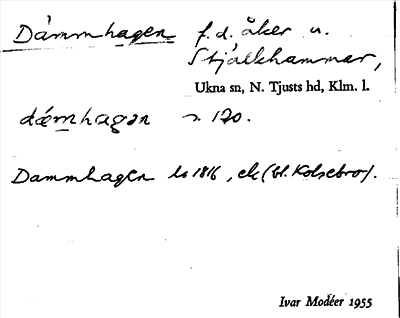 Dámmhagen f.d. åker u.
Stjälkhammar,
Ukna sn, N. Tjusts hd, Klm. l.
dǽmhagən s. 120.
Dammhagen ls 1816, ek (bl. Kolsebro).
Ivar Modéer 1955